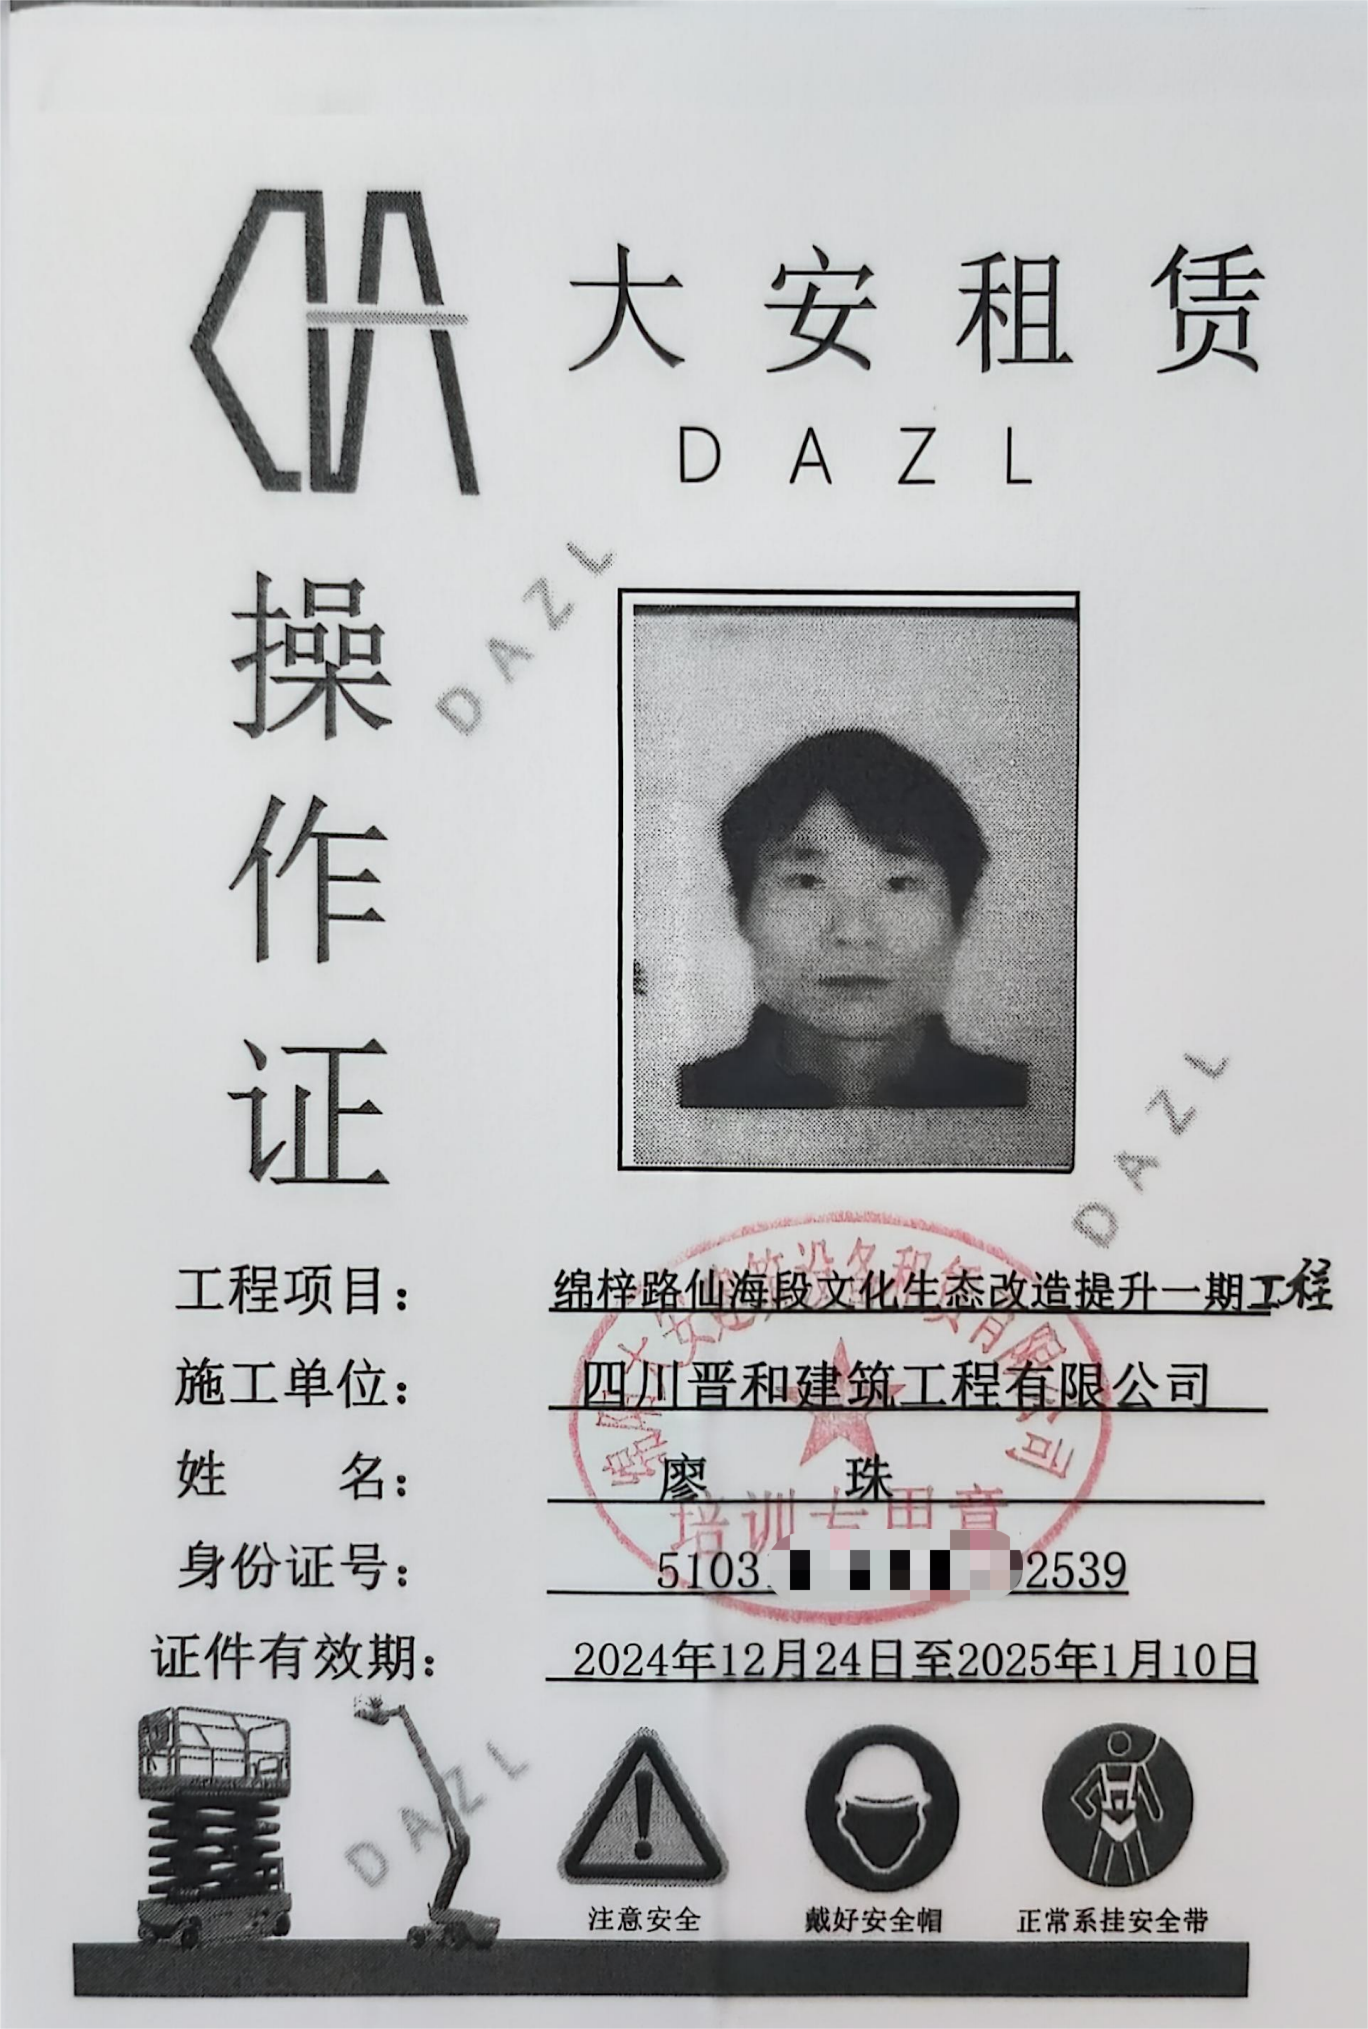 大安租赁
DAZL
操作证
DAZL
DAZL
工程项目： 绵梓路仙海段文化生态改造提升一期工程
施工单位： 四川晋和建筑工程有限公司
姓 名： 廖 珠
身份证号： 5103 2539
证件有效期： 2024年12月24日至2025年1月10日
绵阳大安建筑设备租赁有限公司
培训专用章
DAZL
注意安全 戴好安全帽 正常系挂安全带